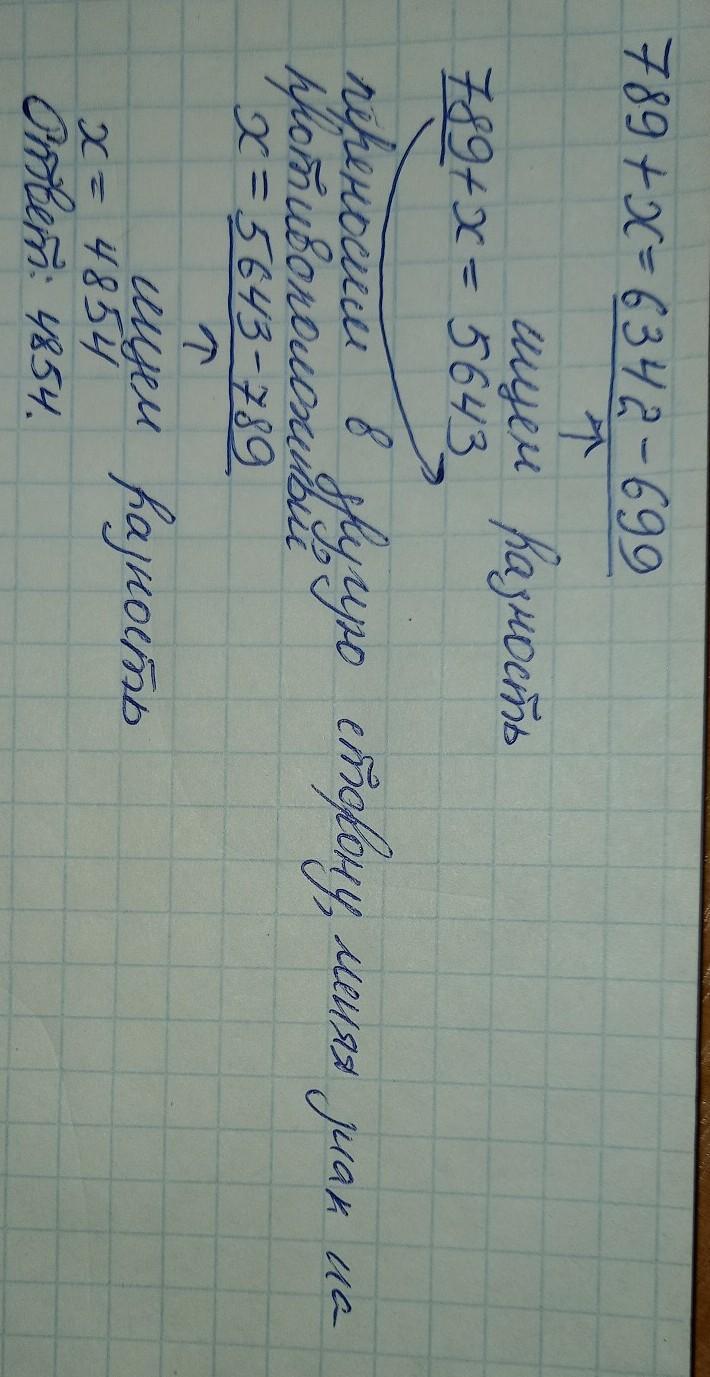 789 + x = 6342 - 699
↑
ищем разность
789 + x = 5643
переносим в другую сторону, меняя знак на
противоположный
x = 5643 - 789
↑
ищем разность
x = 4854
Ответ: 4854.